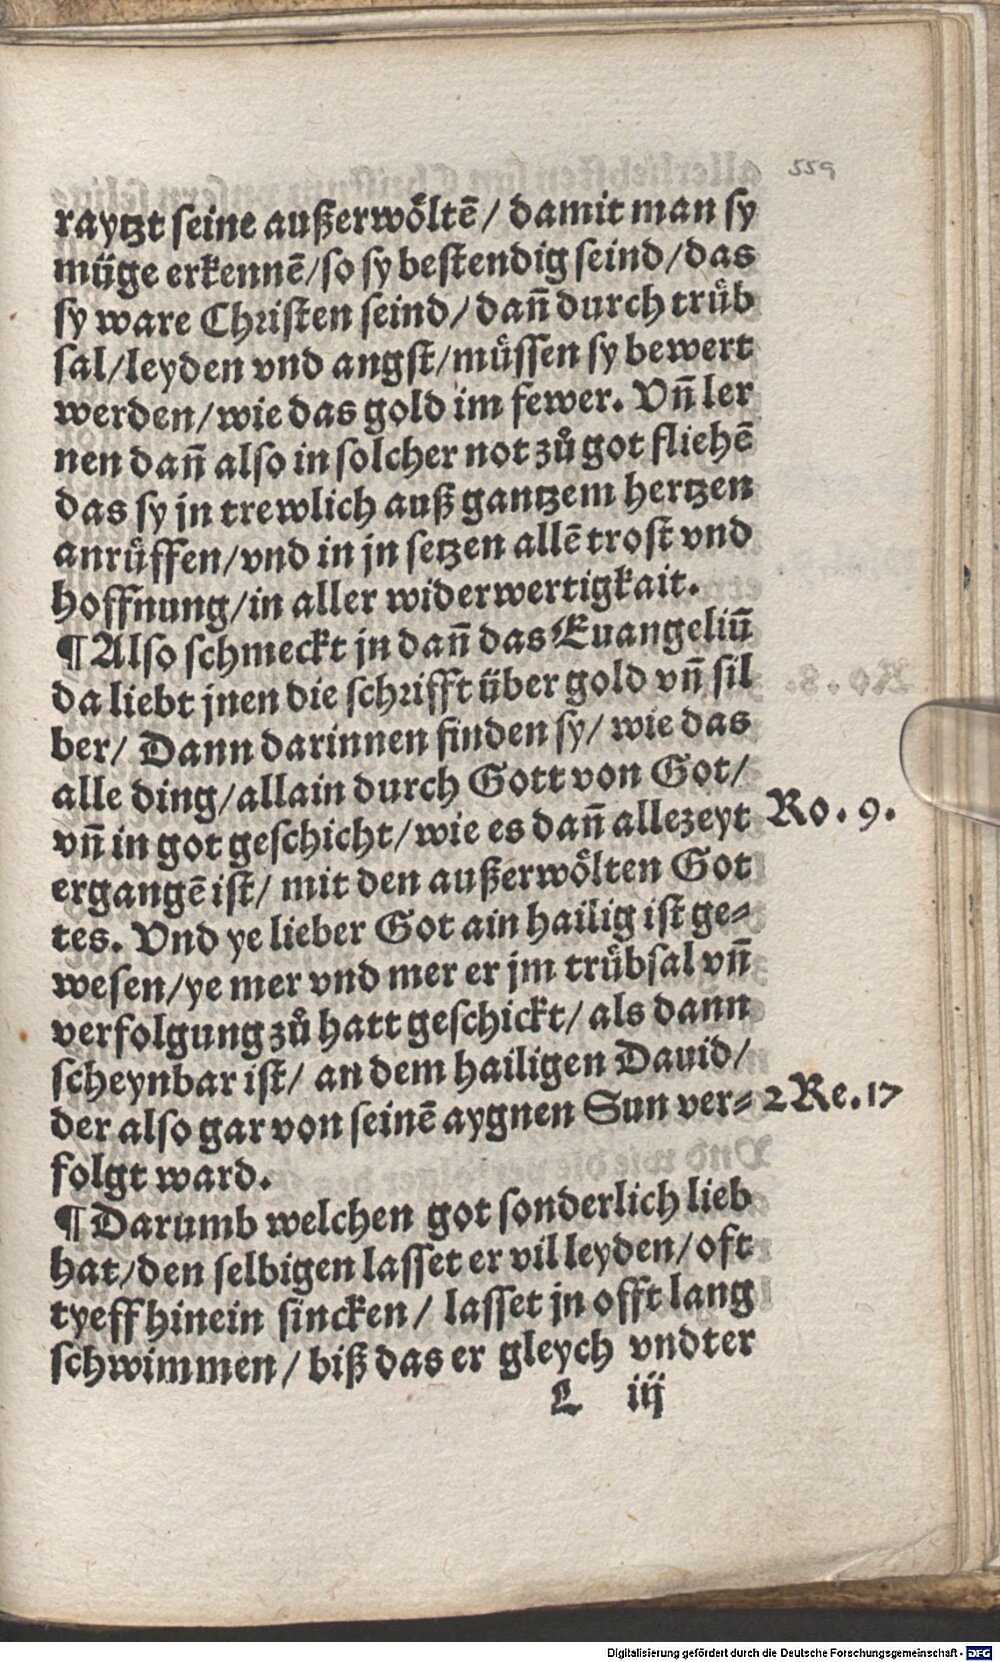 559
raytzt seine außerwoͤltē/ damit man sy
müge erkennē/so sy bestendig seind/das
sy ware Christen seind/dañ durch truͤb
sal/leyden vnd angst/muͤssen sy bewert
werden/wie das gold im fewer. Vñ ler
nen dañ also in solcher not zuͦ got fliehē
das sy jn trewlich auß gantzem hertzen
anruͤffen/vnd in jn setzen allē trost vnd
hoffnung/in aller widerwertigkait.
¶Also schmeckt jn dañ das Euangeliū
da liebt jnen die schrifft über gold vñ sil
ber/ Dann darinnen finden sy/ wie das
alle ding/allain durch Gott von Got/
vñ in got geschicht/wie es dañ allezeyt Ro. 9.
ergangē ist/ mit den außerwoͤlten Got
tes. Vnd ye lieber Got ain hailig ist ge⸗
wesen/ye mer vnd mer er jm truͤbsal vñ
verfolgung zuͦ hatt geschickt/ als dann
scheynbar ist/ an dem hailigen Dauid/
der also gar von seinē aygnen Sun ver⸗ 2 Re. 17
folgt ward.
¶Darumb welchen got sonderlich lieb
hat/den selbigen lasset er vil leyden/oft
tyeff hinein sincken/ lasset jn offt lang
schwimmen/ biß das er gleych vndter
L iij
Digitalisierung gefördert durch die Deutsche Forschungsgemeinschaft - DFG